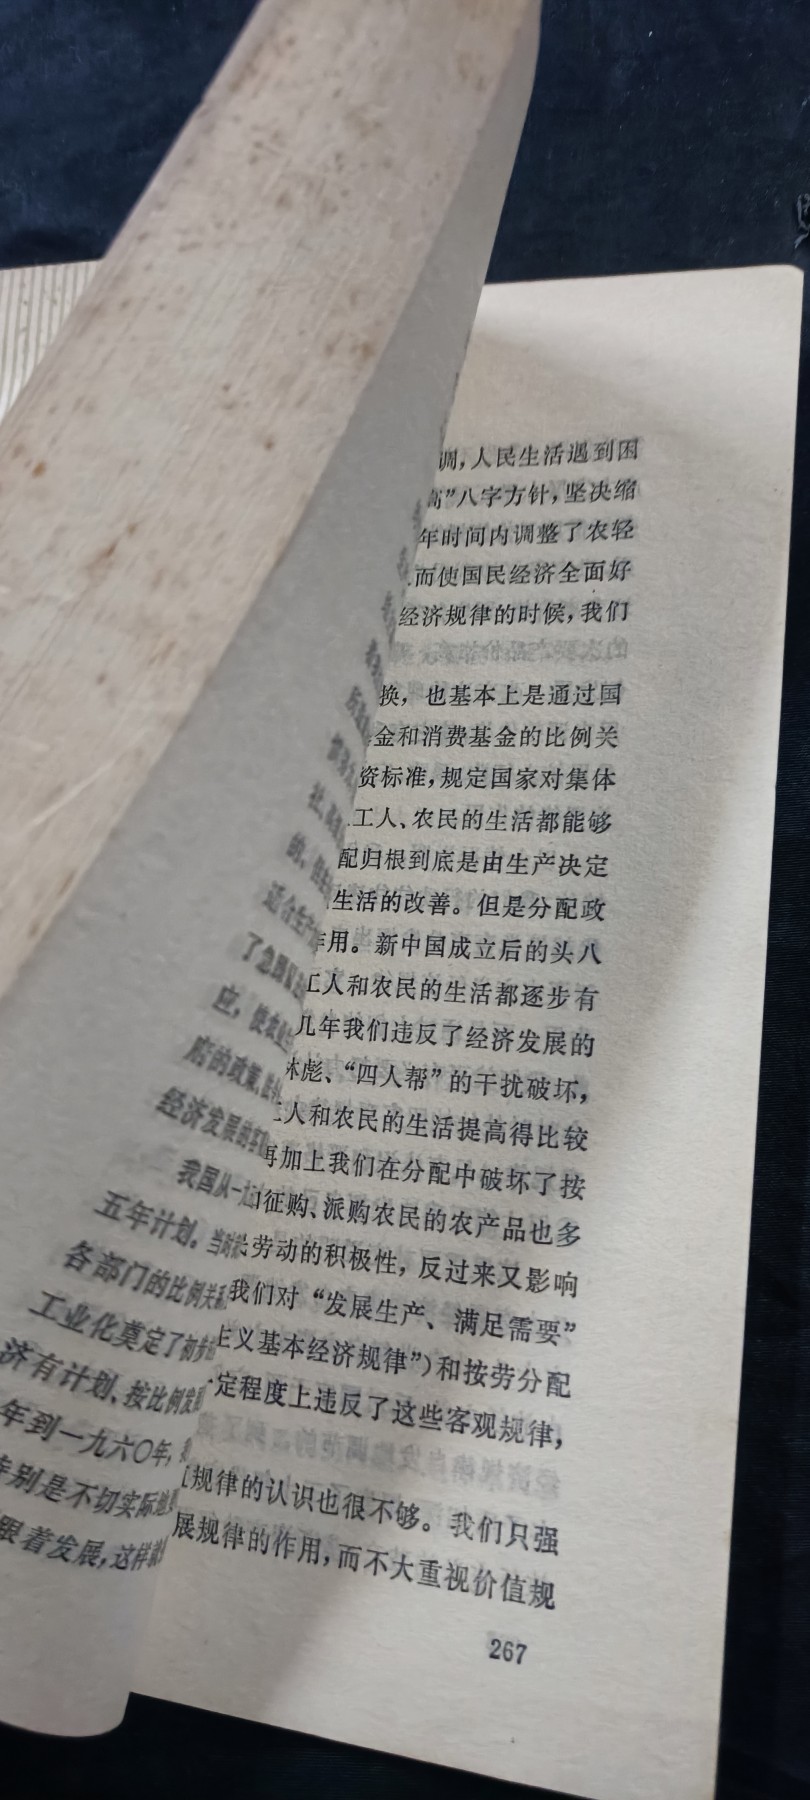 社
的，
适合生产
了急
应，使农业
店的政策，
经济发展的
我国从一
五年计划。当时
各部门的比例关系
工业化奠定了初步
济有计划、按比例发展
年到一九六〇年，
特别是不切实际地
跟着发展，这样就
调，人民生活遇到困
高”八字方针，坚决缩
年时间内调整了农轻
而使国民经济全面好
经济规律的时候，我们
换，也基本上是通过国
基金和消费基金的比例关
资标准，规定国家对集体
工人、农民的生活都能够
配归根到底是由生产决定
生活的改善。但是分配政
作用。新中国成立后的头八
工人和农民的生活都逐步有
几年我们违反了经济发展的
林彪、“四人帮”的干扰破坏，
工人和农民的生活提高得比较
再加上我们在分配中破坏了按
征购、派购农民的农产品也多
劳动的积极性，反过来又影响
我们对“发展生产、满足需要”
主义基本经济规律”）和按劳分配
一定程度上违反了这些客观规律，
规律的认识也很不够。我们只强
展规律的作用，而不大重视价值规
267